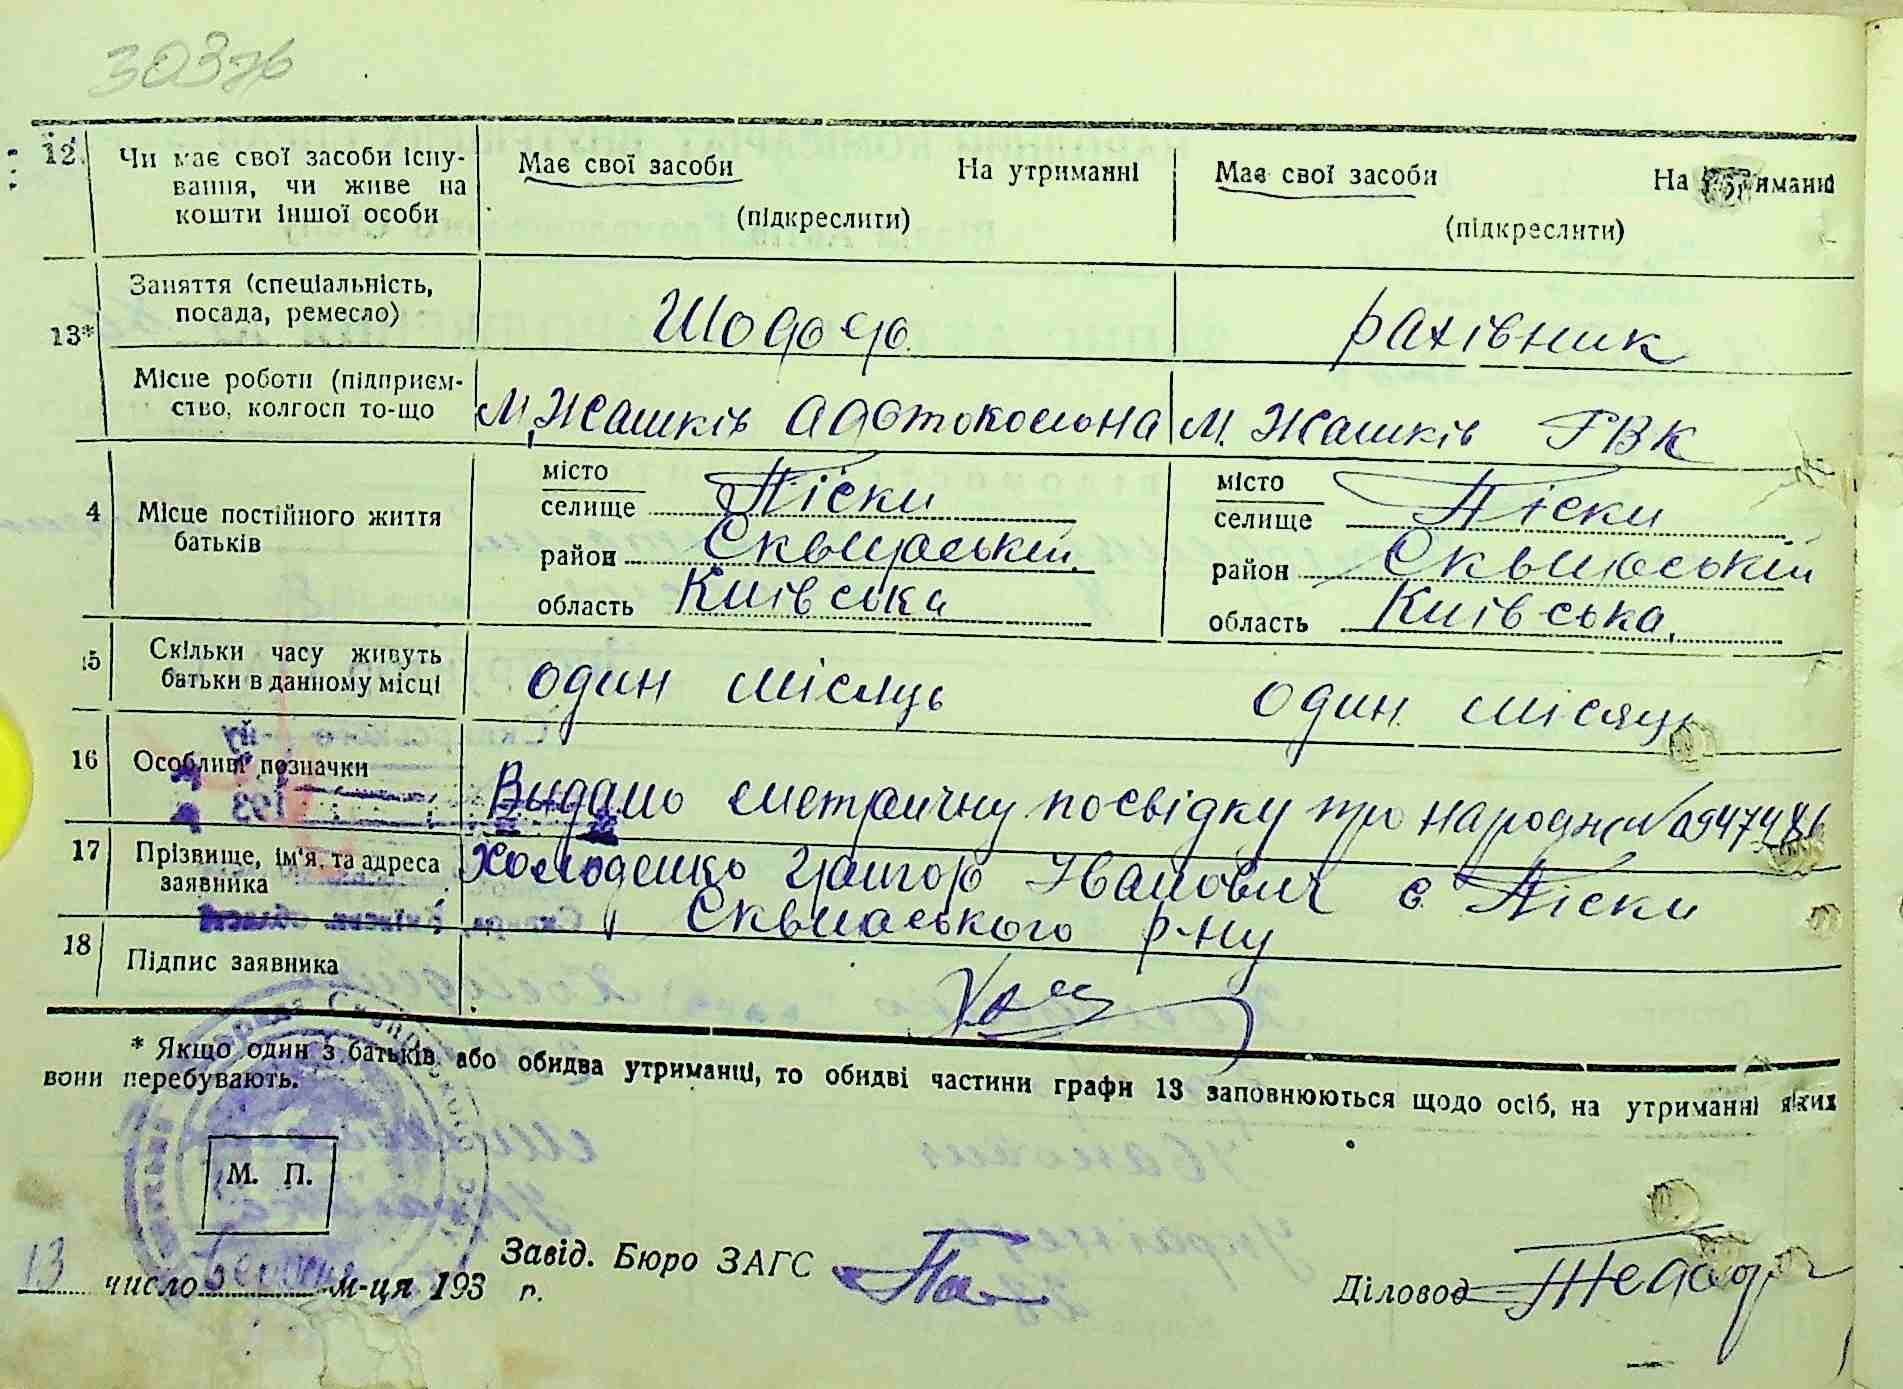 12.
Чи має свої засоби існу-
вання, чи живе на
кошти іншої особи
Має свої засоби На утриманні
(підкреслити)
Має свої засоби На утриманні
(підкреслити)
13*
Заняття (спеціальність,
посада, ремесло)
Шофер
рахівник
Місце роботи (підприєм-
ство, колгосп то-що
М. Жашків Автоколона
М. Жашків РВК
4
Місце постійного життя
батьків
місто
селище Піски
район Сквирський
область Київська
місто
селище Піски
район Сквирський
область Київська
15
Скільки часу живуть
батьки в данному місці
один місяць
один місяць
16
Особливі позначки
Видано метричну посвідку про народж №
17
Прізвище, ім'я, та адреса
заявника
Холоденко Григор Іванович с Піски
Сквирського р-ну
18
Підпис заявника
* Якщо один з батьків, або обидва утриманці, то обидві частини графи 13 заповнюються щодо осіб, на утриманні яких
вони перебувають.
М. П.
13 число м-ця 193 г.
Завід. Бюро ЗАГС
Діловод